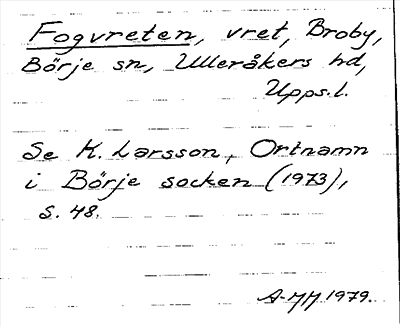 Fogvreten, vret, Broby,
Börje sn, Ulleråkers hd,
Upps.l.
Se K. Larsson, Ortnamn
i Börje socken (1973),
s. 48.
A-MM 1979.